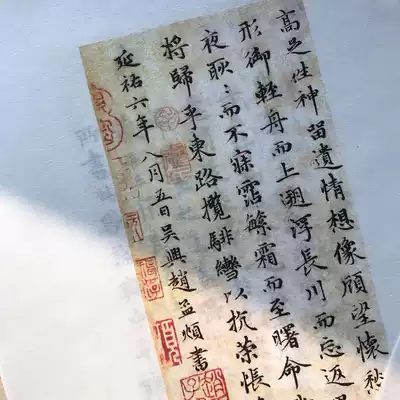 高足往神留遺情想像顧望懷愁
形御輕舟而上遡浮長川而忘返
夜耿〻而不寐霑繁霜而至曙命
將歸乎東路攬騑轡以抗策悵
延祐六年八月五日吳興趙孟頫書